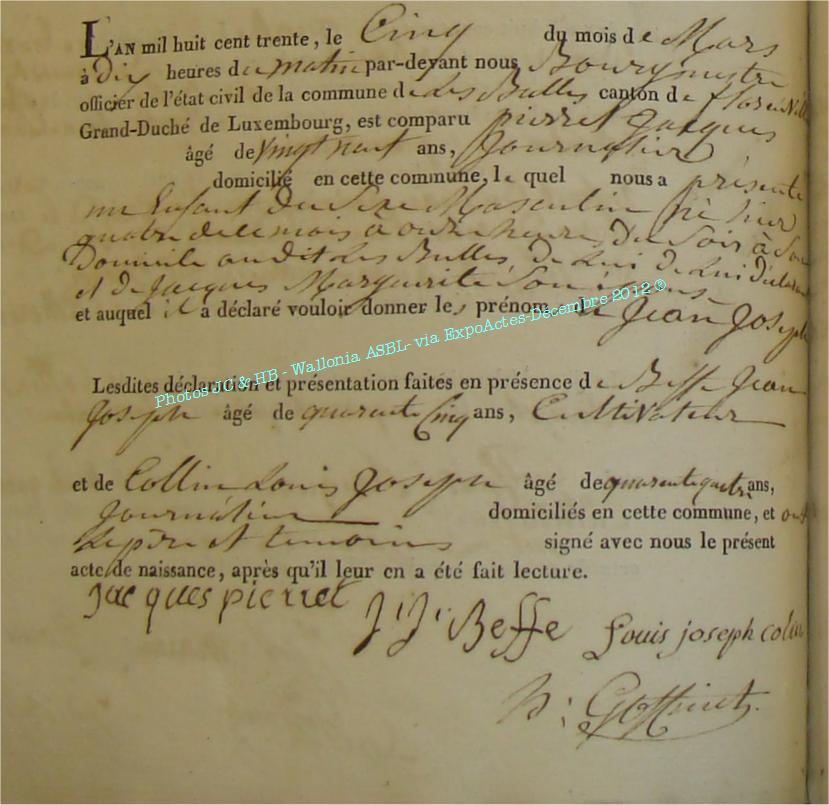 L'AN mil huit cent trente, le Cinq du mois de Mars
à Dix heures du matin par-devant nous Bourgmestre
officier de l'état civil de la commune de Les Bulles canton de florenville
Grand-Duché de Luxembourg, est comparu pierret Jacques
âgé de vingt neuf ans, Journalier
domicilié en cette commune, le quel nous a présenté
un Enfant du Sexe Masculin né hier
quatre de ce mois à onze heures Du Soir à Son
Domicile au dit Les Bulles, De Lui Déclarant
et de Jacques Marguerite Son épouse
et auquel il a déclaré vouloir donner les prénom de Jean Joseph
Photos JC & HB - Wallonia ASBL- via ExpoActes-Décembre 2012 ®
Lesdites déclaration et présentation faites en présence de Beffe Jean
Joseph âgé de quarente Cinq ans, Cultivateur
et de Collin Louis Joseph âgé de quarente quatre ans,
Journalier domiciliés en cette commune, et ont
Le père et temoins signé avec nous le présent
acte de naissance, après qu'il leur en a été fait lecture.
Jacques pierret
J. J. Beffe Louis joseph colin
h: Goffinet